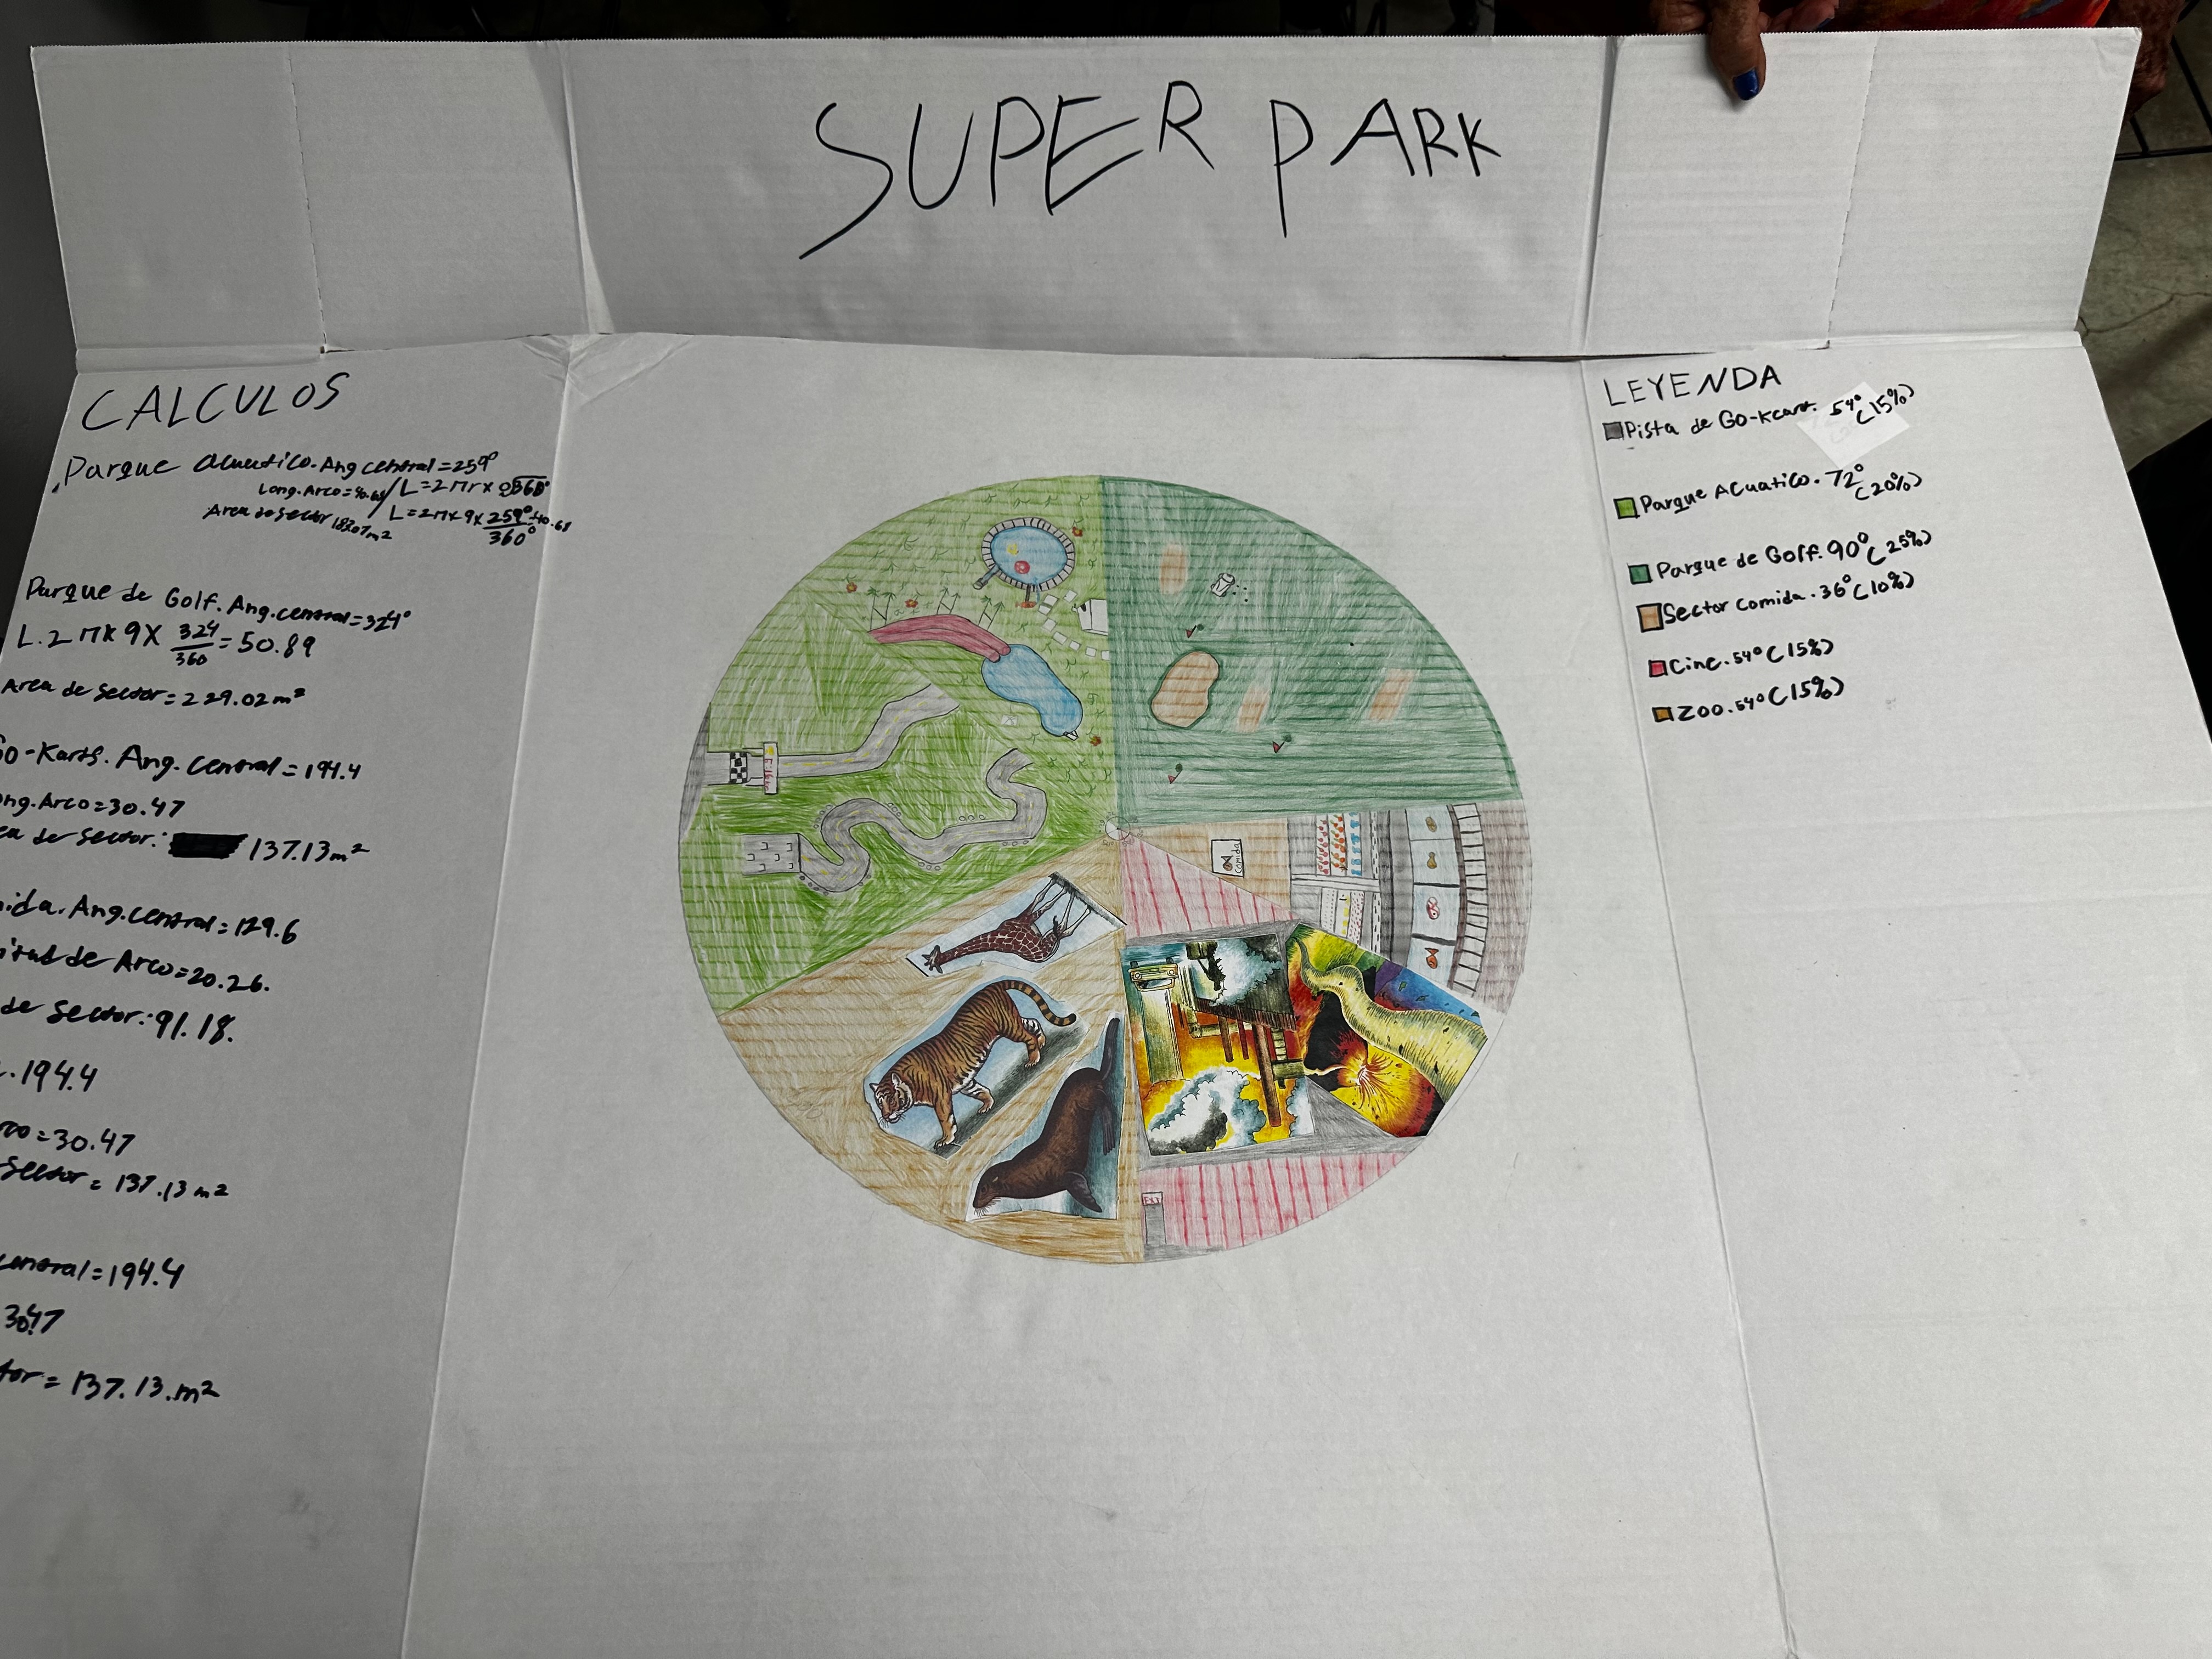 SUPER PARK
CALCULOS
Parque Acuatico. Ang central = 259°
Long. Arco = 40.68 / L = 2πr x 360°
L = 2π x 9 x 259°/360° = 40.68
Area de sector 183.07 m²
Parque de Golf. Ang. central = 324°
L. 2π x 9 x 324/360 = 50.89
Area de Sector = 229.02 m²
Go-Karts. Ang. central = 194.4
ong. Arco = 30.47
ea de sector: 137.13 m²
ida. Ang. central = 129.6
itud de Arco = 20.26.
de sector: 91.18.
. 194.4
rco = 30.47
Sector = 137.13 m²
central = 194.4
30.47
tor = 137.13. m²
LEYENDA
Pista de Go-Kcart. 54° (15%)
Parque Acuatico. 72° (20%)
Parque de Golf. 90° (25%)
Sector comida. 36° (10%)
Cine. 54° (15%)
Zoo. 54° (15%)
Comida